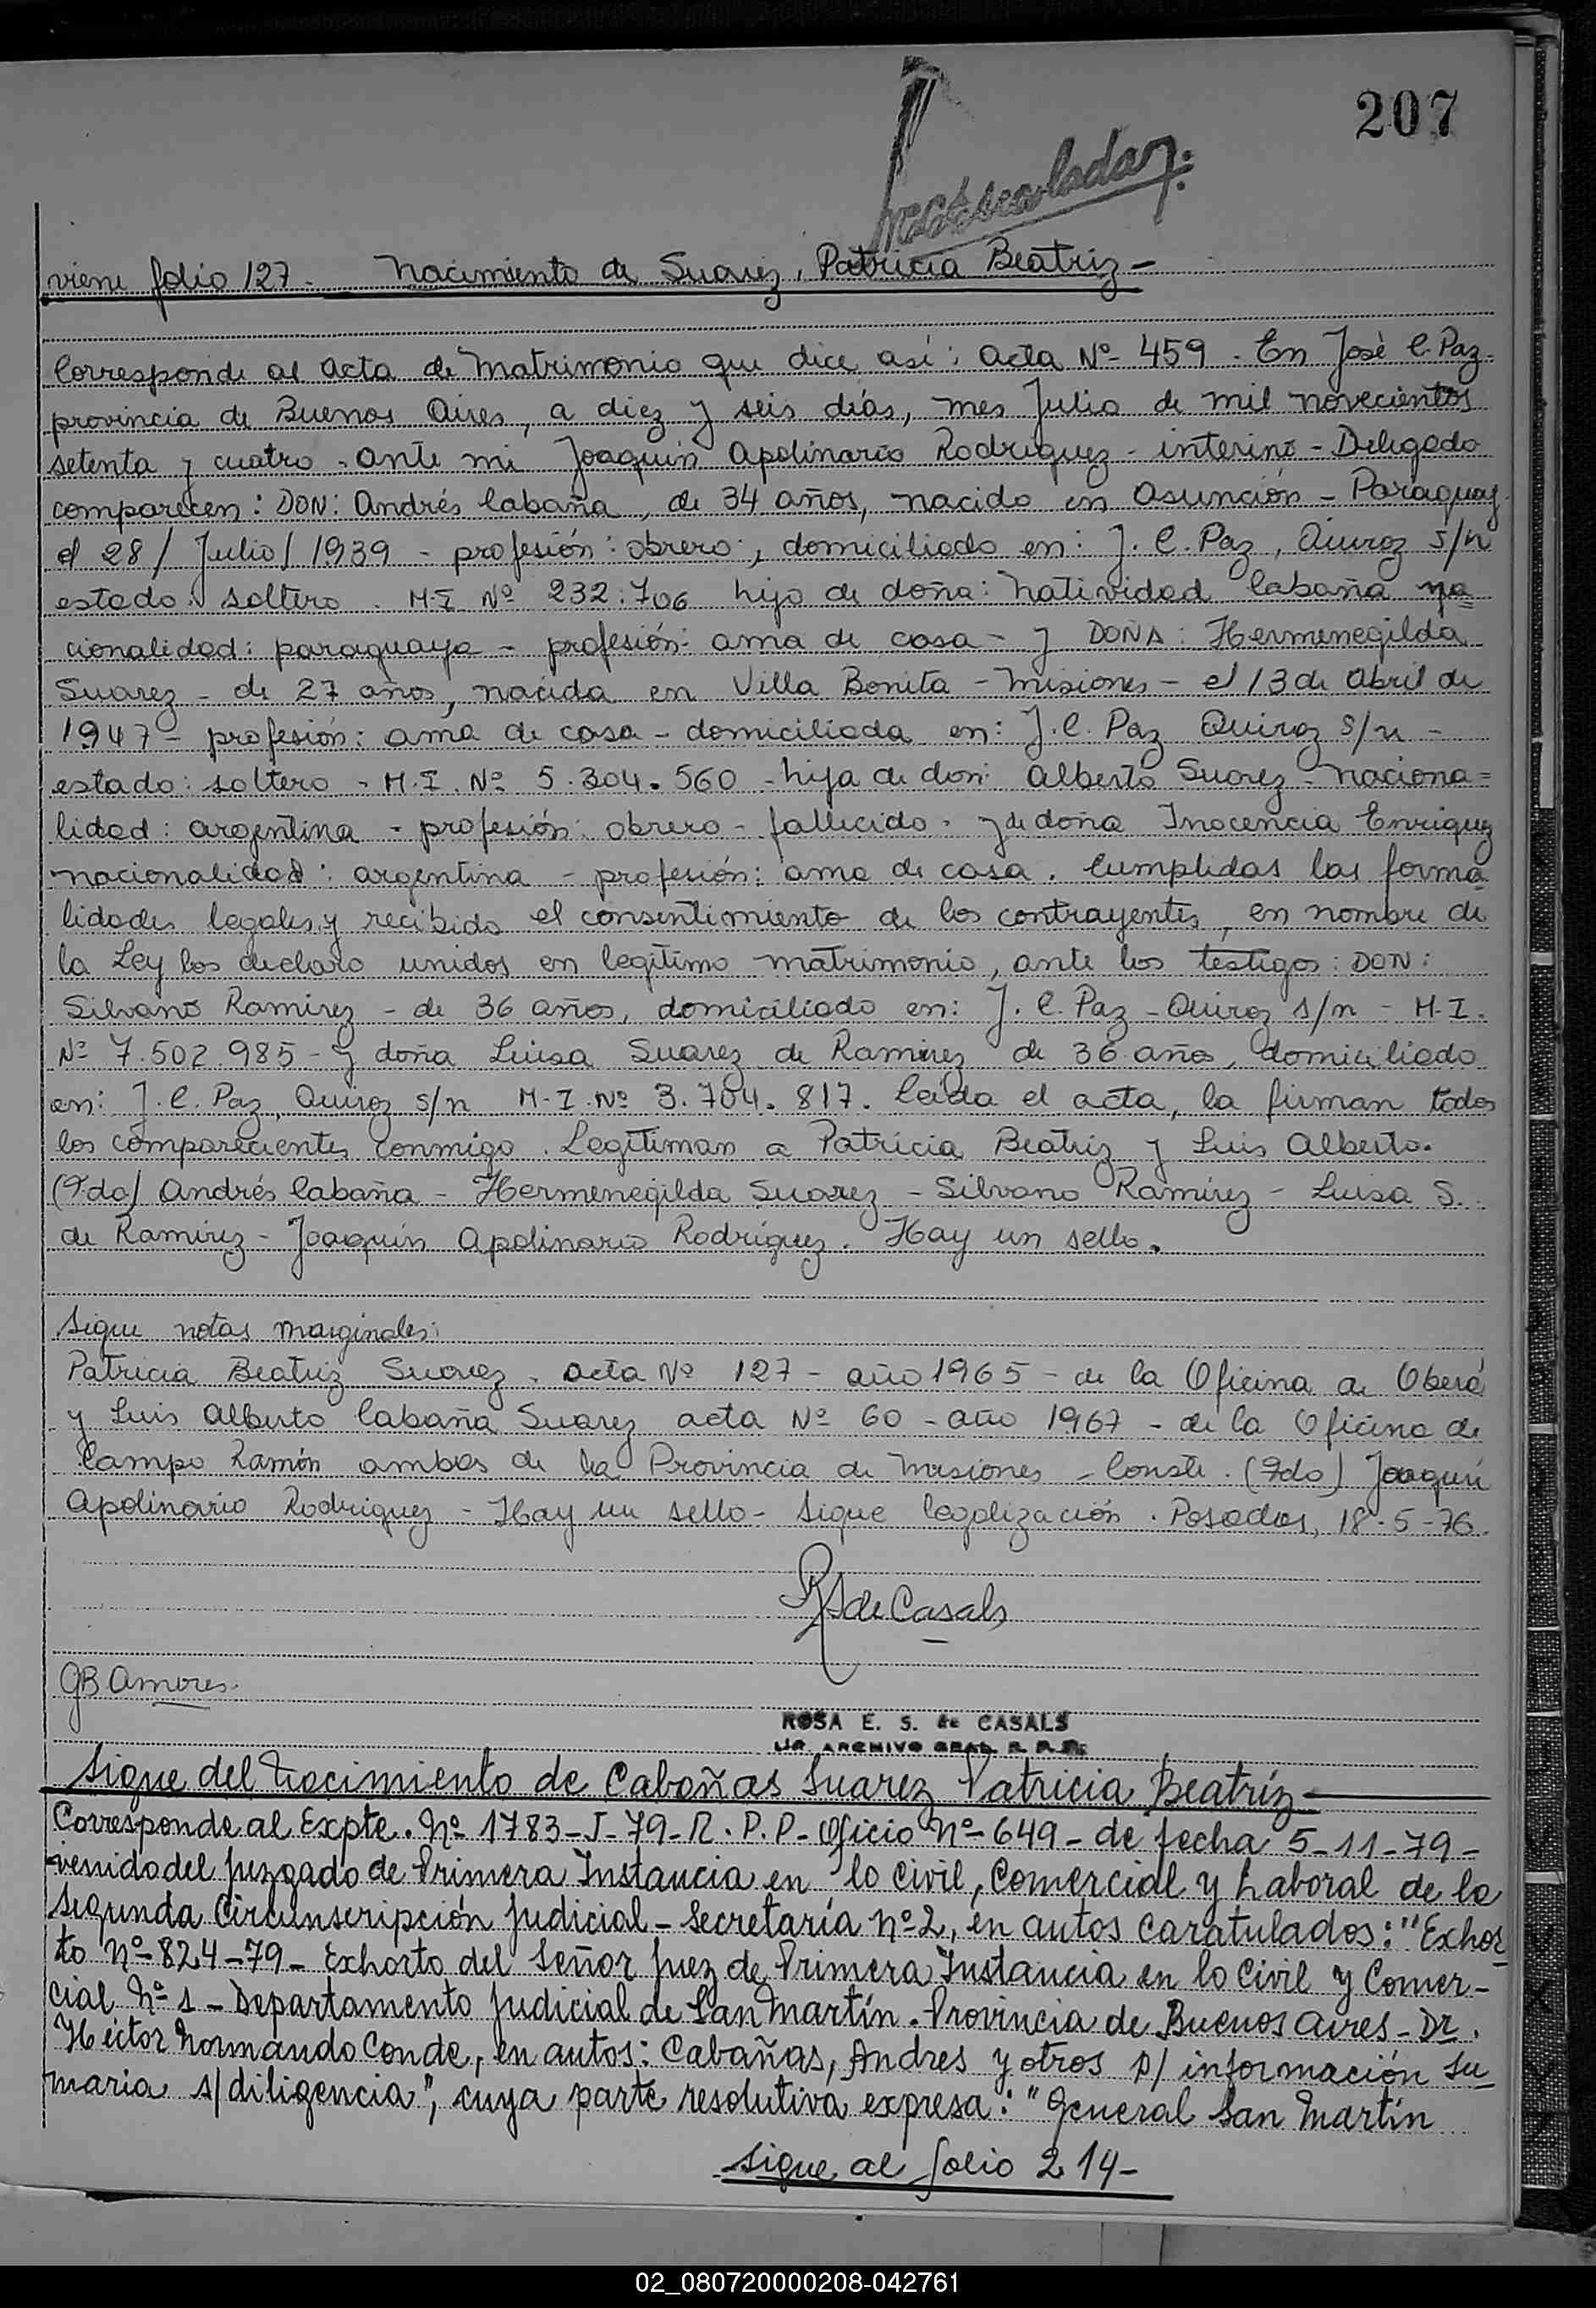 207
viene folio 127 - Nacimiento de Suarez, Patricia Beatriz -
Corresponde al acta de Matrimonio que dice así: Acta Nº 459 - En José C. Paz -
provincia de Buenos Aires, a diez y seis días, mes Julio de mil novecientos
setenta y cuatro - ante mi Joaquín Apolinario Rodriguez - interino - Delegado
comparecen: DON: Andrés Cabaña, de 34 años, nacido en Asunción - Paraguay
el 28/ Julio/ 1939 - profesión: obrero, domiciliado en: J. C. Paz, Quiroz s/n
estado: soltero. M.I Nº 232.706 hijo de doña: Natividad Cabaña na
cionalidad: paraguaya - profesión: ama de casa - y DOÑA: Hermenegilda
Suarez - de 27 años, nacida en Villa Bonita - Misiones - el 13 de Abril de
1947 - profesión: ama de casa - domiciliada en: J. C. Paz Quiroz s/n -
estado: soltero - M.I. Nº 5.304.560 - hija de don: Alberto Suarez - naciona=
lidad: argentina - profesión: obrero - fallecido - y de doña Inocencia Enriquez
nacionalidad: argentina - profesión: ama de casa. Cumplidas las forma
lidades legales y recibido el consentimiento de los contrayentes, en nombre de
la Ley los declaro unidos en legítimo matrimonio, ante los testigos: DON:
Silvano Ramirez - de 36 años, domiciliado en: J. C. Paz - Quiroz s/n - M.I.
Nº 7.502.985 - y doña Luisa Suarez de Ramirez de 36 años, domiciliado
en: J. C. Paz, Quiroz s/n M.I. Nº 3.704.817. Leída el acta, la firman todos
los comparecientes conmigo. Legitiman a Patricia Beatriz y Luis Alberto.
(Fdo) Andrés Cabaña - Hermenegilda Suarez - Silvano Ramírez - Luisa S.
de Ramirez - Joaquín Apolinario Rodríguez. Hay un sello.
Sigue notas marginales:
Patricia Beatriz Suarez. acta Nº 127 - año 1965 - de la Oficina de Oberá
y Luis Alberto Cabaña Suarez acta Nº 60 - año 1967 - de la Oficina de
Campo Ramón ambos de la Provincia de Misiones - Conste. (Fdo) Joaquín
Apolinario Rodriguez - Hay un sello - Sigue legalización. Posadas, 18-5-76.
RS de Casals
GB Amores.
ROSA E. S. de CASALS
ARCHIVO GRAL. R. P. P.
Sigue del Nacimiento de Cabañas Suarez Patricia Beatríz -
Corresponde al Expte. Nº 1783-J-79-R.P.P- Oficio Nº 649 - de fecha 5-11-79 -
venido del Juzgado de Primera Instancia en lo Civil, Comercial y Laboral de la
Segunda Circunscripción Judicial - Secretaría nº 2, en autos caratulados: "Exhor
to Nº 824-79 - Exhorto del Señor Juez de Primera Instancia en lo Civil y Comer-
cial Nº 1 - Departamento Judicial de San Martín. Provincia de Buenos Aires - Dr.
Héctor Normando Conde, en autos: Cabañas, Andres y otros p/ información su
maria s/diligencia", cuya parte resolutiva expresa: "General San Martín
Sigue al folio 214 -
02_080720000208-042761